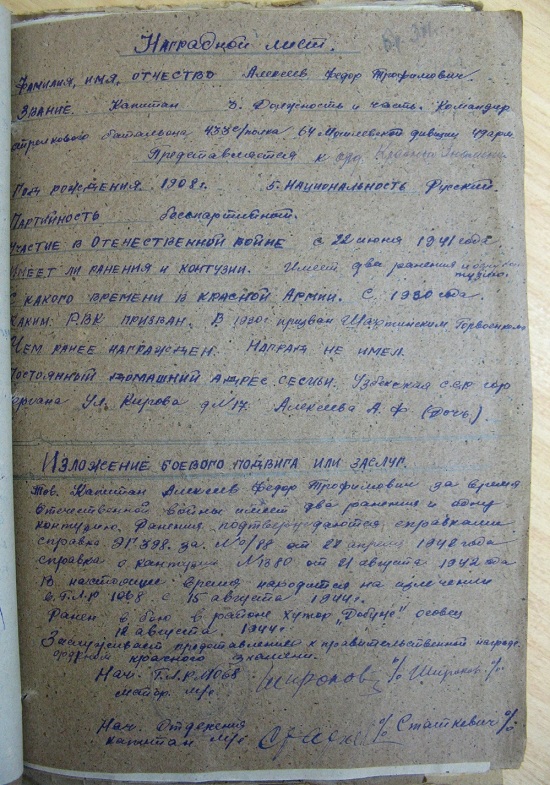 Наградной лист.
Фамилия, имя, отчество Алексеев Федор Трофимович.
Звание. Капитан 3. Должность и часть. Командир
стрелкового батальона 433 с/полка 64 Могилевской дивизии 49 арм.
Представляется к орд. Красного Знамени
Год рождения. 1908 г. 5. Национальность Русский.
Партийность беспартийный.
Участие в Отечественной войне с 22 июня 1941 года.
Имеет ли ранения и контузии. Имеет два ранения и одну кон
тузию.
С какого времени в Красной Армии. С 1930 года.
Каким РВК призван. В 1930 г призван Шахтинским Горвоенком
Чем ранее награжден. Наград не имел.
Постоянный домашний адрес семьи. Узбекская ССР гор
Фергана Ул. Кирова д N 17. Алексеева А. Ф (Дочь).
Изложение боевого подвига или заслуг.
Тов. Капитан Алексеев Федор Трофимович за время
Отечественной войны имеет два ранения и одну
контузию. Ранения подтверждаются справками
справка ЭГ 398. за. № 0/88 от 28 апреля 1942 года
справка о контузии N 1380 от 21 августа 1942 года
В настоящие время находится на излечении
в Г.Л.Р 1068 с 15 августа 1944 г.
Ранен в бою в районе хутор осовец
12 августа 1944 г.
Заслуживает представления к правительственной награде
орденом красного знамени.
Нач. Г.Л.Р. 1068 Широков % Широков %
м/с
Нач. Отделения % Сташкевич %
капитан м/с